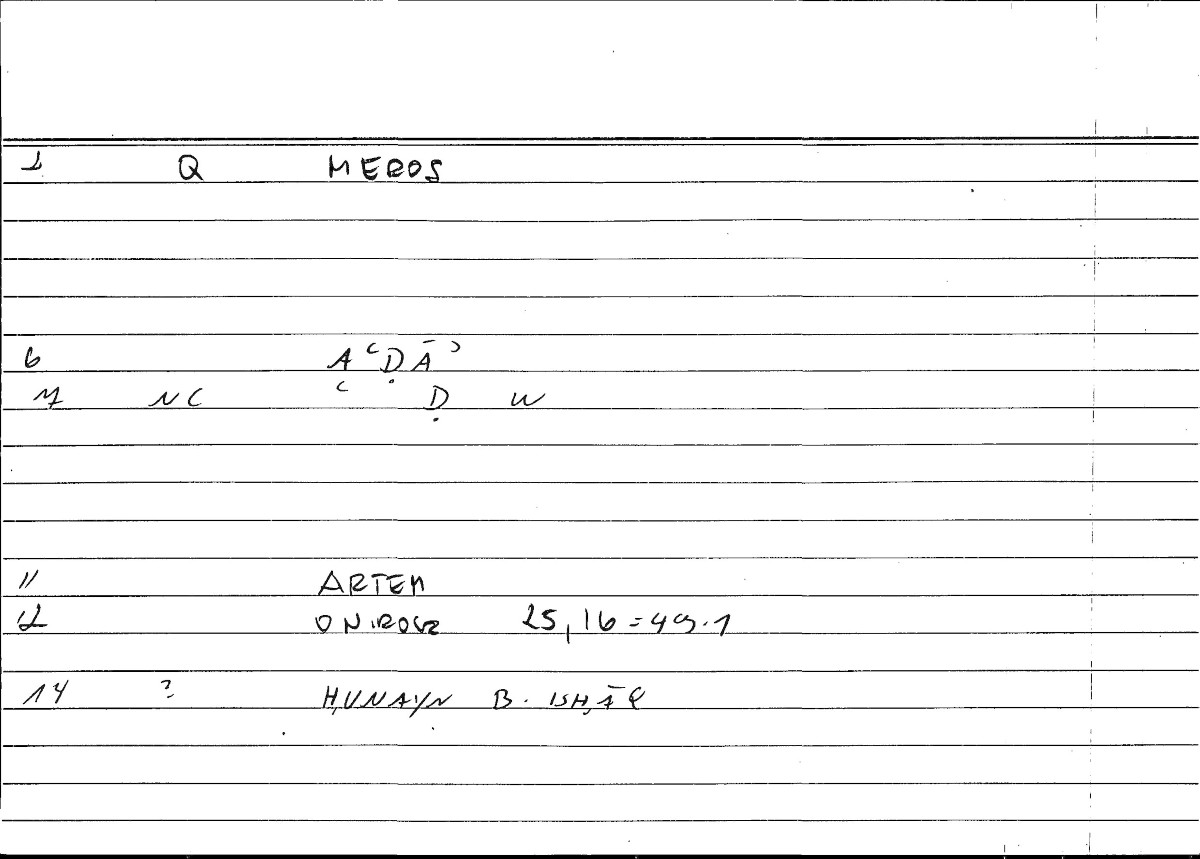 1 Q MEROS
6 AʿḌĀʾ
7 NC ʿ Ḍ W
11 ARTEM
12 ONIROCR 25,16=49.1
14 ? ḤUNAYN B. ISḤĀQ